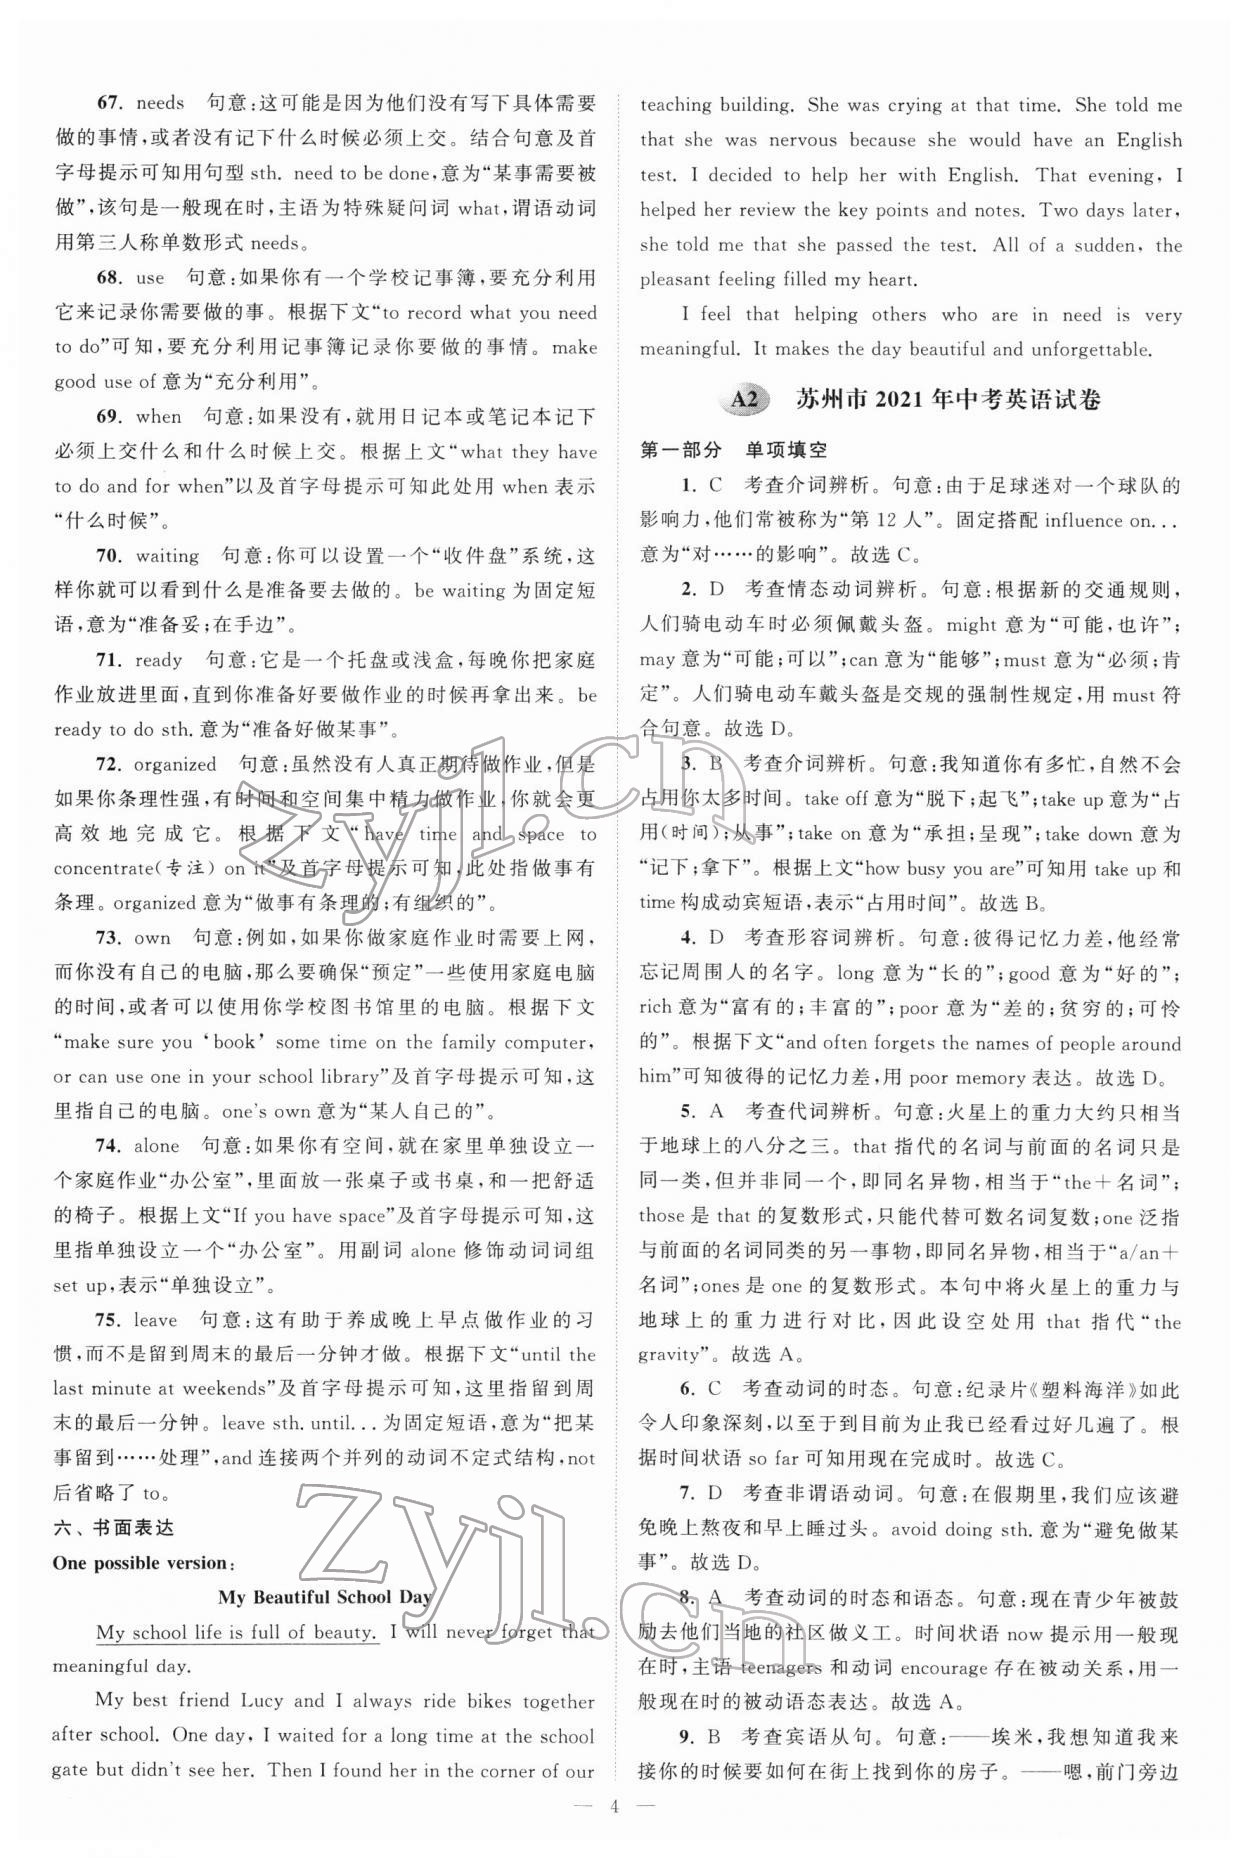 67. needs 句意:这可能是因为他们没有写下具体需要
做的事情,或者没有记下什么时候必须上交。结合句意及首
字母提示可知用句型 sth. need to be done,意为“某事需要被
做”,该句是一般现在时,主语为特殊疑问词 what,谓语动词
用第三人称单数形式 needs。
68. use 句意:如果你有一个学校记事簿,要充分利用
它来记录你需要做的事。根据下文“to record what you need
to do”可知,要充分利用记事簿记录你要做的事情。make
good use of 意为“充分利用”。
69. when 句意:如果没有,就用日记本或笔记本记下
必须上交什么和什么时候上交。根据上文“what they have
to do and for when”以及首字母提示可知此处用 when 表示
“什么时候”。
70. waiting 句意:你可以设置一个“收件盘”系统,这
样你就可以看到什么是准备要去做的。be waiting 为固定短
语,意为“准备妥;在手边”。
71. ready 句意:它是一个托盘或浅盒,每晚你把家庭
作业放进里面,直到你准备好要做作业的时候再拿出来。be
ready to do sth. 意为“准备好做某事”。
72. organized 句意:虽然没有人真正期待做作业,但是
如果你条理性强,有时间和空间集中精力做作业,你就会更
高效地完成它。根据下文“have time and space to
concentrate(专注) on it”及首字母提示可知,此处指做事有
条理。organized 意为“做事有条理的;有组织的”。
73. own 句意:例如,如果你做家庭作业时需要上网,
而你没有自己的电脑,那么要确保“预定”一些使用家庭电脑
的时间,或者可以使用你学校图书馆里的电脑。根据下文
“make sure you ‘book’ some time on the family computer,
or can use one in your school library”及首字母提示可知,这
里指自己的电脑。one's own 意为“某人自己的”。
74. alone 句意:如果你有空间,就在家里单独设立一
个家庭作业“办公室”,里面放一张桌子或书桌,和一把舒适
的椅子。根据上文“If you have space”及首字母提示可知,这
里指单独设立一个“办公室”。用副词 alone 修饰动词词组
set up,表示“单独设立”。
75. leave 句意:这有助于养成晚上早点做作业的习
惯,而不是留到周末的最后一分钟才做。根据下文“until the
last minute at weekends”及首字母提示可知,这里指留到周
末的最后一分钟。leave sth. until... 为固定短语,意为“把某
事留到……处理”,and 连接两个并列的动词不定式结构,not
后省略了 to。
六、书面表达
One possible version:
My Beautiful School Day
My school life is full of beauty. I will never forget that
meaningful day.
My best friend Lucy and I always ride bikes together
after school. One day, I waited for a long time at the school
gate but didn't see her. Then I found her in the corner of our
teaching building. She was crying at that time. She told me
that she was nervous because she would have an English
test. I decided to help her with English. That evening, I
helped her review the key points and notes. Two days later,
she told me that she passed the test. All of a sudden, the
pleasant feeling filled my heart.
I feel that helping others who are in need is very
meaningful. It makes the day beautiful and unforgettable.
A2 苏州市 2021 年中考英语试卷
第一部分 单项填空
1. C 考查介词辨析。句意:由于足球迷对一个球队的
影响力,他们常被称为“第 12 人”。固定搭配 influence on...
意为“对……的影响”。故选 C。
2. D 考查情态动词辨析。句意:根据新的交通规则,
人们骑电动车时必须佩戴头盔。might 意为“可能,也许”;
may 意为“可能;可以”;can 意为“能够”;must 意为“必须;肯
定”。人们骑电动车戴头盔是交规的强制性规定,用 must 符
合句意。故选 D。
3. B 考查介词辨析。句意:我知道你有多忙,自然不会
占用你太多时间。take off 意为“脱下;起飞”;take up 意为“占
用(时间);从事”;take on 意为“承担;呈现”;take down 意为
“记下;拿下”。根据上文“how busy you are”可知用 take up 和
time 构成动宾短语,表示“占用时间”。故选 B。
4. D 考查形容词辨析。句意:彼得记忆力差,他经常
忘记周围人的名字。long 意为“长的”;good 意为“好的”;
rich 意为“富有的;丰富的”;poor 意为“差的;贫穷的;可怜
的”。根据下文“and often forgets the names of people around
him”可知彼得的记忆力差,用 poor memory 表达。故选 D。
5. A 考查代词辨析。句意:火星上的重力大约只相当
于地球上的八分之三。that 指代的名词与前面的名词只是
同一类,但并非同一个,即同名异物,相当于“the+名词”;
those 是 that 的复数形式,只能代替可数名词复数;one 泛指
与前面的名词同类的另一事物,即同名异物,相当于“a/an+
名词”;ones 是 one 的复数形式。本句中将火星上的重力与
地球上的重力进行对比,因此设空处用 that 指代“the
gravity”。故选 A。
6. C 考查动词的时态。句意:纪录片《塑料海洋》如此
令人印象深刻,以至于到目前为止我已经看过好几遍了。根
据时间状语 so far 可知用现在完成时。故选 C。
7. D 考查非谓语动词。句意:在假期里,我们应该避
免晚上熬夜和早上睡过头。avoid doing sth. 意为“避免做某
事”。故选 D。
8. A 考查动词的时态和语态。句意:现在青少年被鼓
励去他们当地的社区做义工。时间状语 now 提示用一般现
在时,主语 teenagers 和动词 encourage 存在被动关系,用一
般现在时的被动语态表达。故选 A。
9. B 考查宾语从句。句意:——埃米,我想知道我来
接你的时候要如何在街上找到你的房子。——嗯,前门旁边
— 4 —
zyjl.cn
zyjl.cn